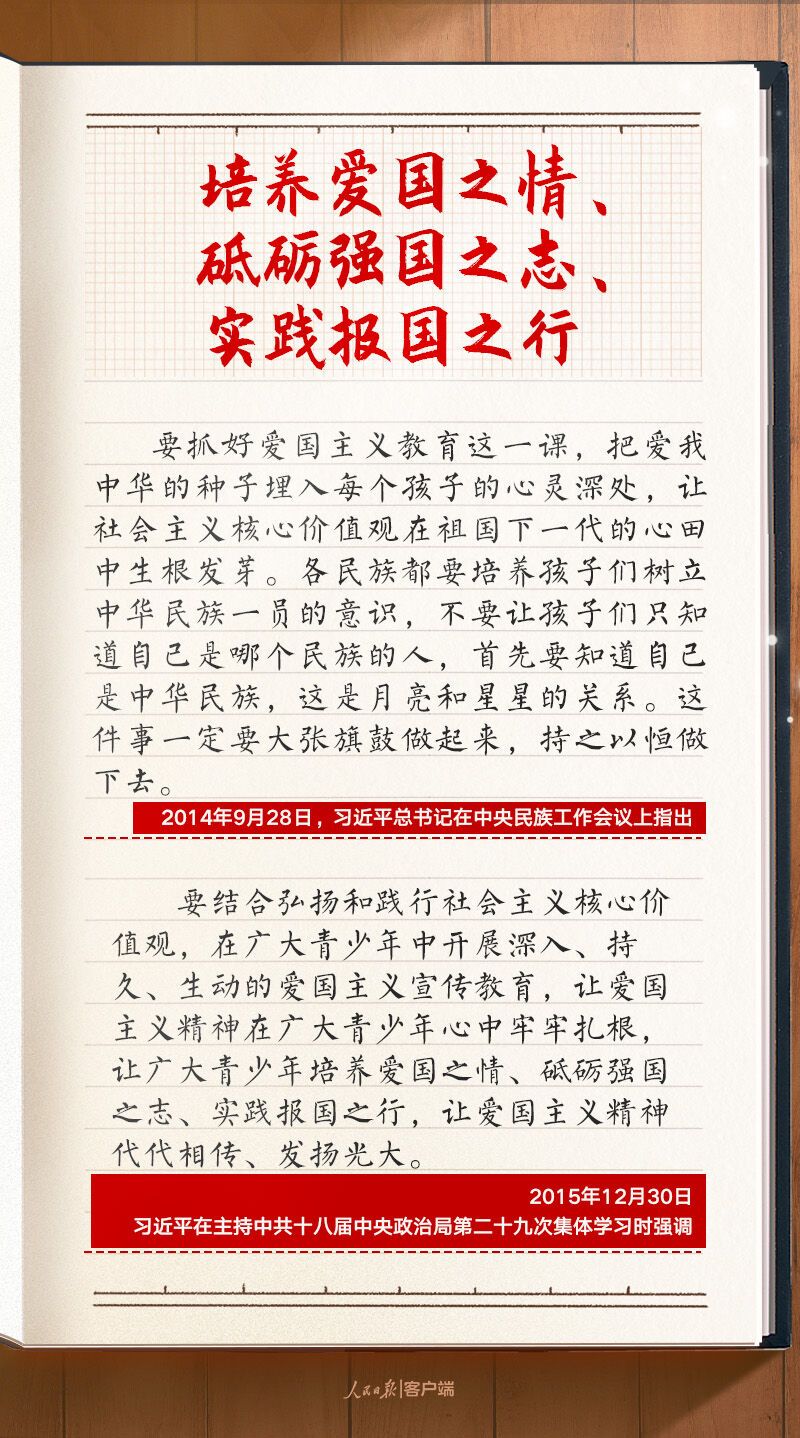 培养爱国之情、
砥砺强国之志、
实践报国之行
要抓好爱国主义教育这一课，把爱我
中华的种子埋入每个孩子的心灵深处，让
社会主义核心价值观在祖国下一代的心田
中生根发芽。各民族都要培养孩子们树立
中华民族一员的意识，不要让孩子们只知
道自己是哪个民族的人，首先要知道自己
是中华民族，这是月亮和星星的关系。这
件事一定要大张旗鼓做起来，持之以恒做
下去。
2014年9月28日，习近平总书记在中央民族工作会议上指出
要结合弘扬和践行社会主义核心价
值观，在广大青少年中开展深入、持
久、生动的爱国主义宣传教育，让爱国
主义精神在广大青少年心中牢牢扎根，
让广大青少年培养爱国之情、砥砺强国
之志、实践报国之行，让爱国主义精神
代代相传、发扬光大。
2015年12月30日
习近平在主持中共十八届中央政治局第二十九次集体学习时强调
人民日报|客户端